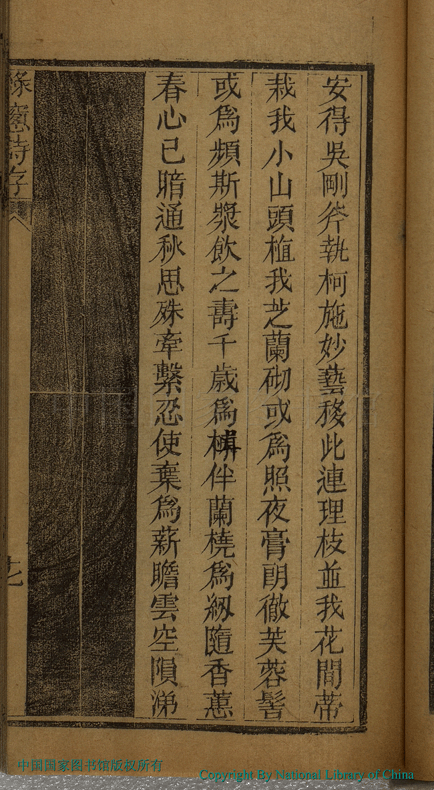 安得吳剛斧執柯施妙藝移此連理枝並我花間蒂
栽我小山頭植我芝蘭砌或爲照夜膏朗徹芙蓉髻
或爲頻斯漿飲之壽千歲爲樹伴蘭橈爲紉隨香蕙
春心已暗通秋思殊牽繫忍使棄爲薪瞻雲空隕涕
窗詩存
中国国家图书馆版权所有
Copyright By National Library of China